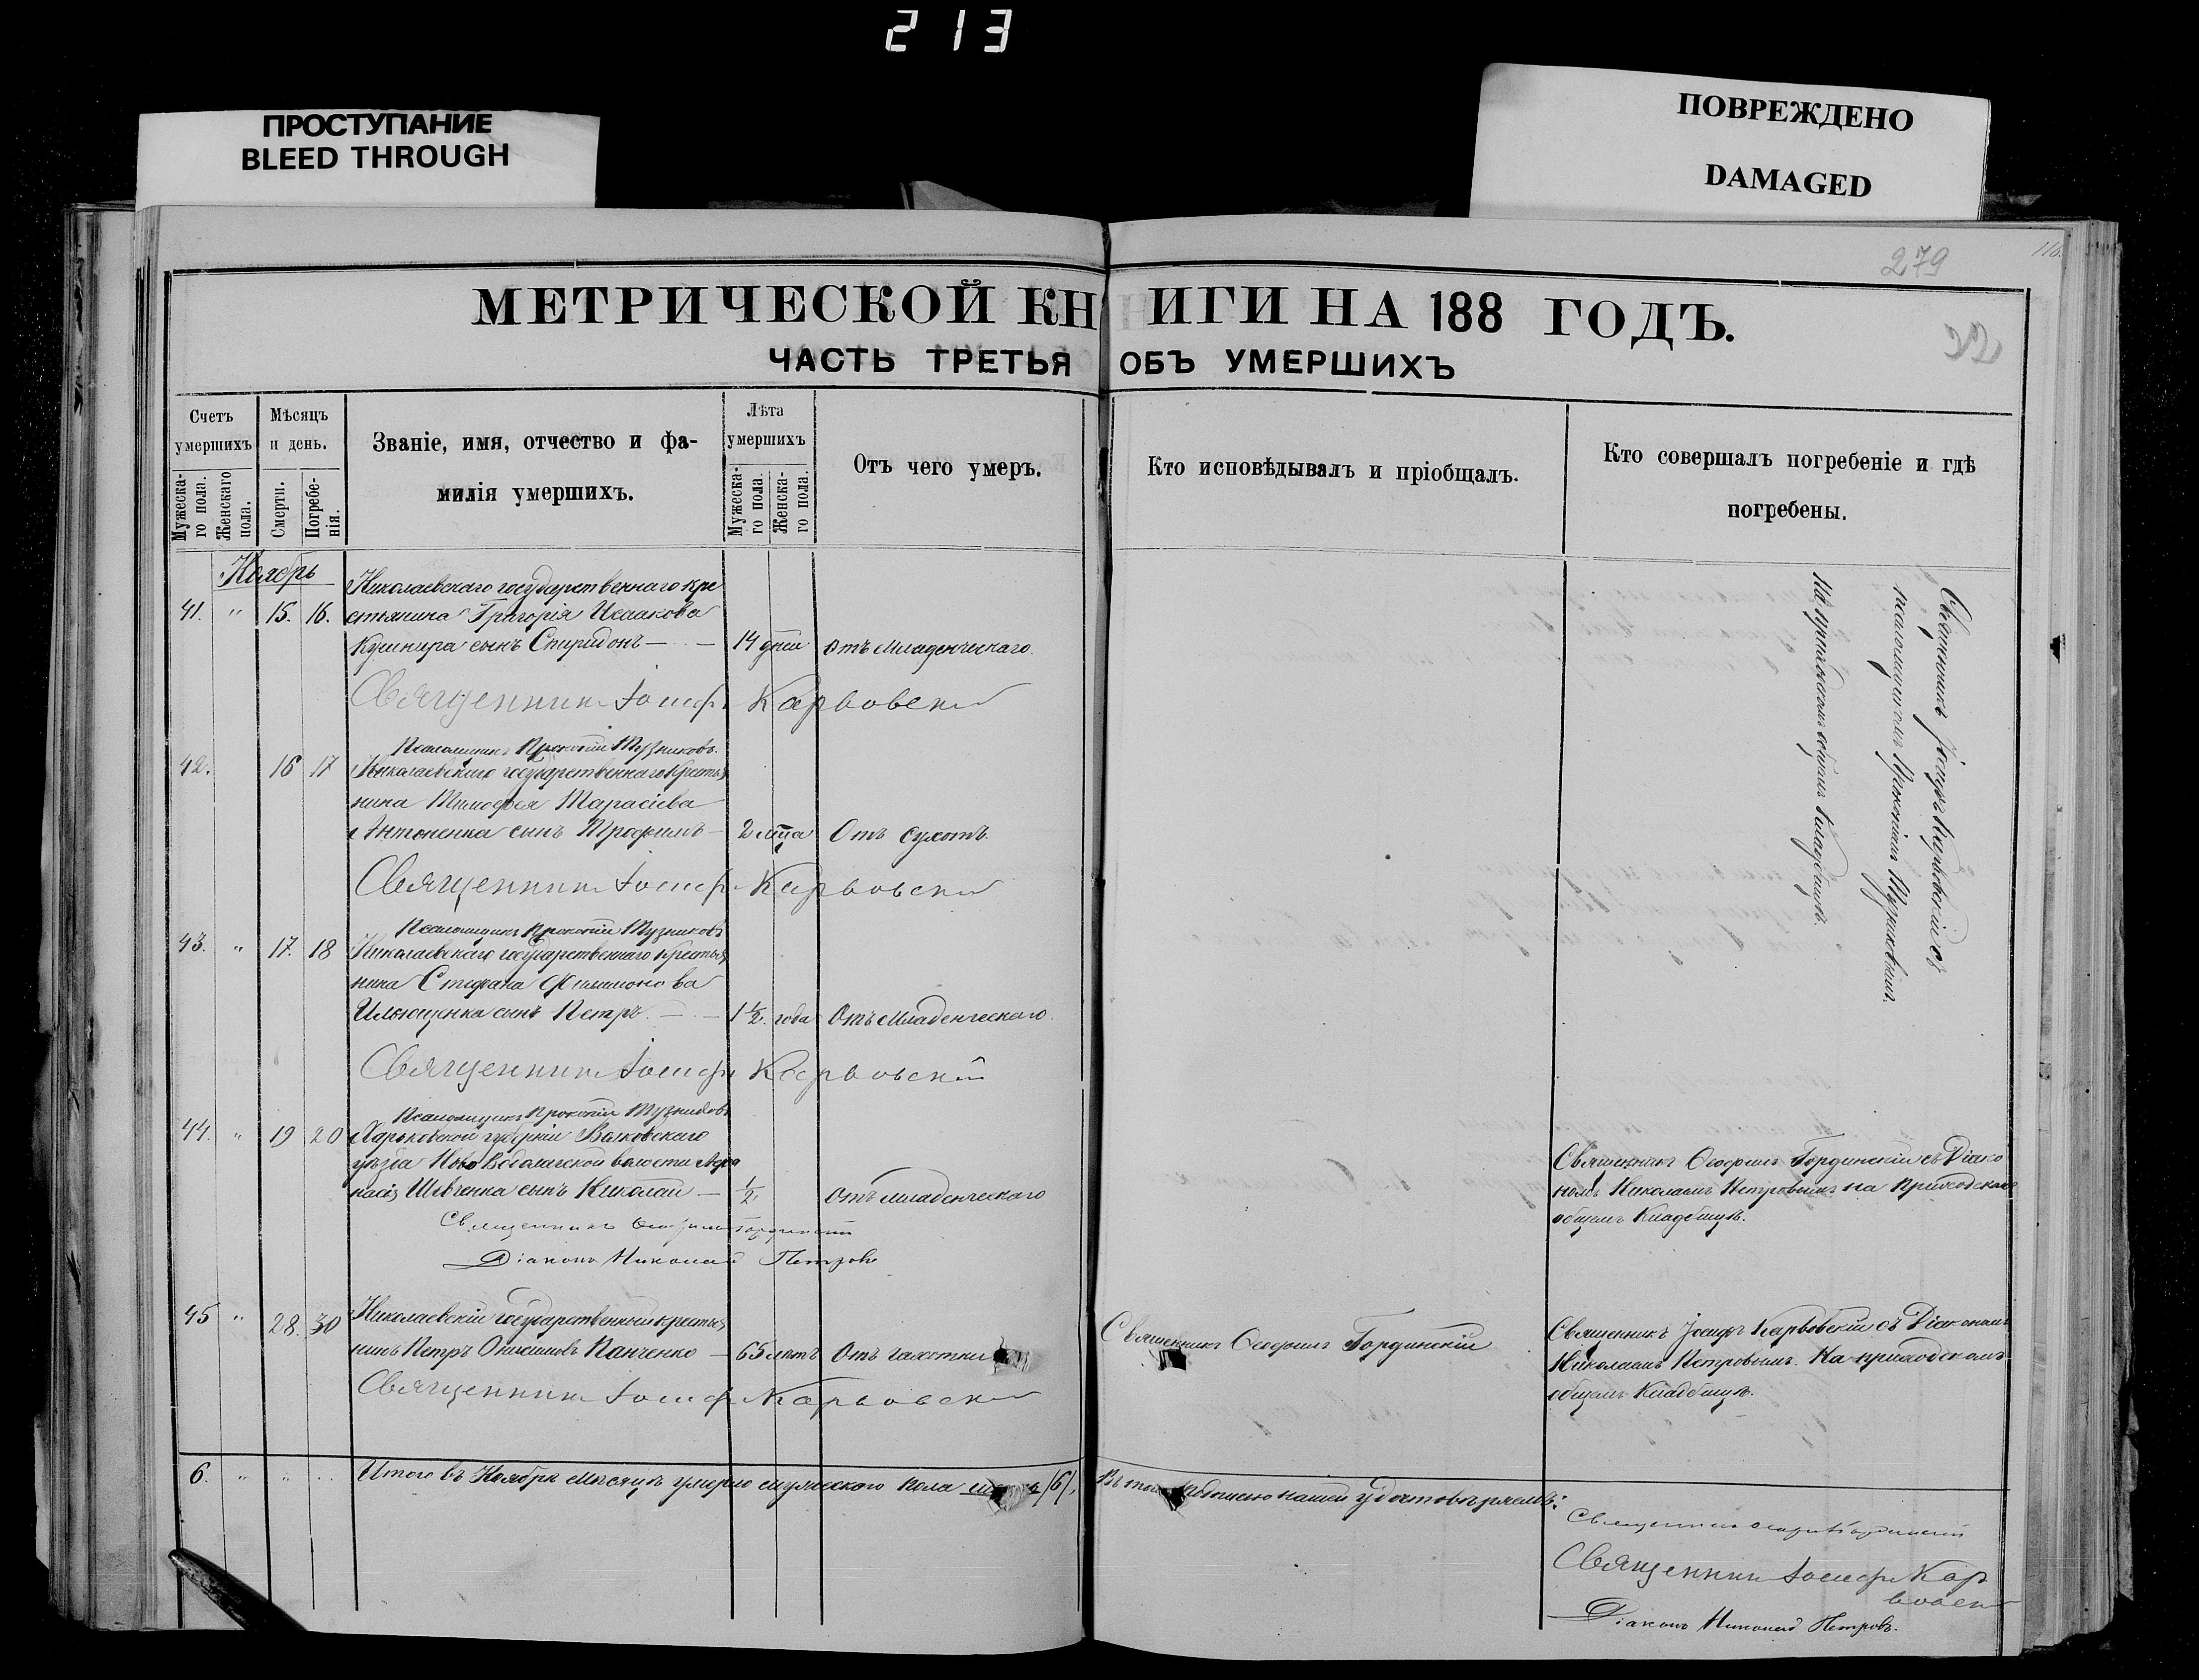 213
ПРОСТУПАНИЕ
BLEED THROUGH
ПОВРЕЖДЕНО
DAMAGED
279
116.
22
МЕТРИЧЕСКОЙ КНИГИ НА 188 ГОДЪ.
ЧАСТЬ ТРЕТЬЯ ОБЪ УМЕРШИХЪ
Счетъ умершихъ
Мужескаго пола.
Женскаго пола.
Мѣсяцъ и день.
Смерти.
Погребенія.
Званіе, имя, отчество и фамилія умершихъ.
Лѣта умершихъ
Мужескаго пола.
Женскаго пола.
Отъ чего умеръ.
Кто исповѣдывалъ и пріобщалъ.
Кто совершалъ погребеніе и гдѣ погребены.
Ноябрь
Николаевскаго государственнаго кре
41. " 15. 16. стьянина Григорія Исаакова
Кушнира сынъ Спиридонъ — 14 дней отъ младенческаго.
Священникъ Іосифъ Карвовскій
Псаломщикъ Прокопій Тузниковъ.
42. 16 17 Николаевскаго государственнаго крестья
нина Тимофея Тарасіева
Антоненка сынъ Трофимъ — 2 м͠ца Отъ сухотъ.
Священникъ Іосифъ Карвовскій
Псаломщикъ Прокопій Тузниковъ
43. " 17. 18 Николаевскаго государственнаго крестья
нина Стефана Филимонова
Ильющенка сынъ Петръ. — 1½ года Отъ младенческаго.
Священникъ Іосифъ Карвовскій
Псаломщикъ Прокопій Тузниковъ
44. " 19 20 Харьковской губерніи Валковскаго
уѣзда Ново Водолагской волости Афа
насія Шевченка сынъ Николай — ½ отъ младенческаго
Священникъ Ѳеофилъ Гординскій
Діаконъ Николай Петровъ
45 " 28. 30 Николаевскій государственный крестья
нинъ Петръ Онисимовъ Панченко — 65 лѣтъ Отъ чахотки
Священникъ Іосифъ Карвовскій
6. " " " Итого въ Ноябрѣ мѣсяцѣ умерло мужескаго пола /6/.
Священникъ Іосифъ Карвовскій съ
псаломщикомъ Прокопіемъ Тузниковымъ.
На приходскомъ общемъ кладбищѣ.
Священникъ Ѳеофилъ Гординскій съ Діако
номъ Николаемъ Петровымъ на приходскомъ
общемъ кладбищѣ.
Священникъ Ѳеофилъ Гординскій
Священникъ Іосифъ Карвовскій съ Діакономъ
Николаемъ Петровымъ. На приходскомъ
общемъ кладбищѣ.
Въ томъ подписью нашей удостовѣряемъ:
Священникъ Ѳеофилъ Гординскій
Священникъ Іосифъ Кар
вовскій
Діаконъ Николай Петровъ.